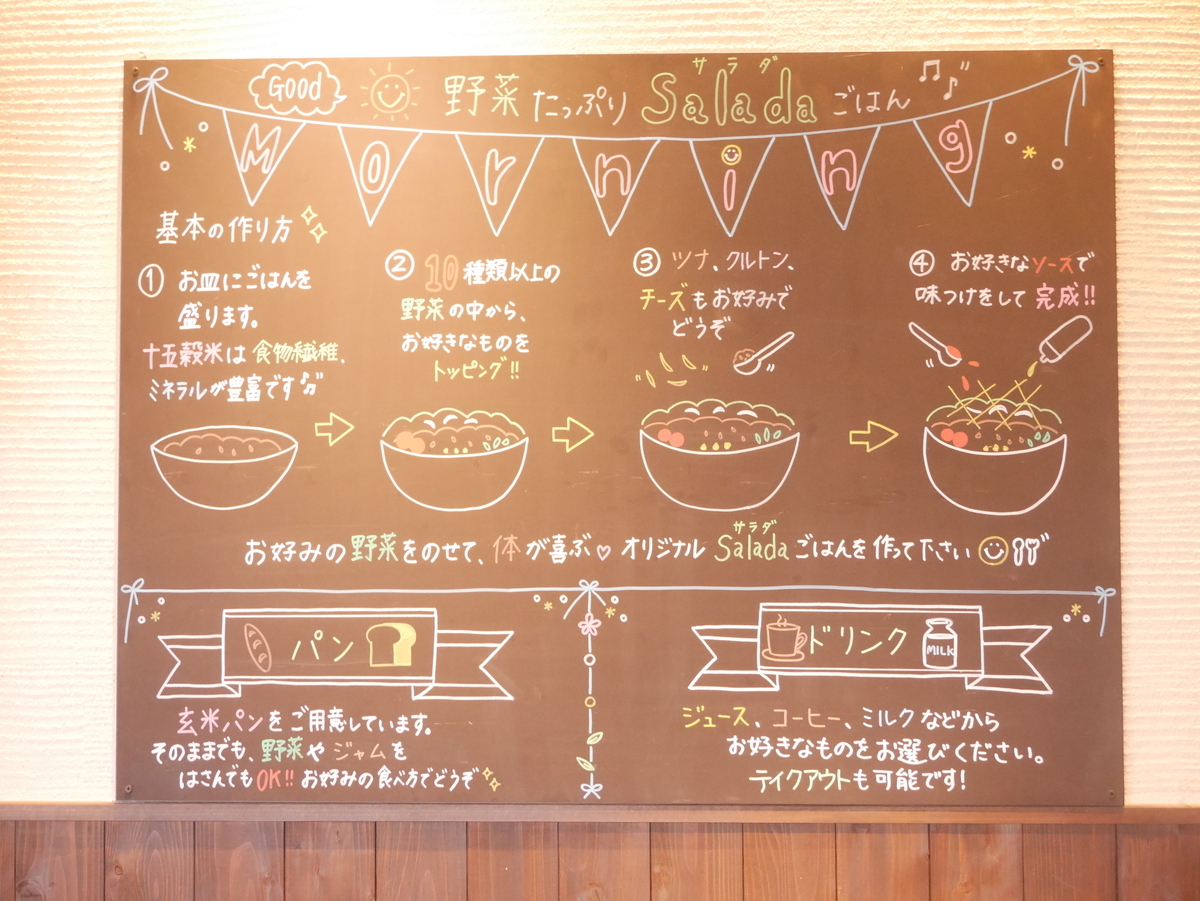 Good
野菜たっぷり Saladaごはん
サラダ
Morning
基本の作り方
① お皿にごはんを
盛ります。
十五穀米は食物繊維、
ミネラルが豊富です
② 10種類以上の
野菜の中から、
お好きなものを
トッピング!!
③ ツナ、クルトン、
チーズもお好みで
どうぞ
④ お好きなソースで
味つけをして完成!!
サラダ
お好みの野菜をのせて、体が喜ぶ♡ オリジナル Saladaごはんを作って下さい
パン
玄米パンをご用意しています。
そのままでも、野菜やジャムを
はさんでもOK!! お好みの食べ方でどうぞ
ドリンク
MILK
ジュース、コーヒー、ミルクなどから
お好きなものをお選びください。
テイクアウトも可能です!